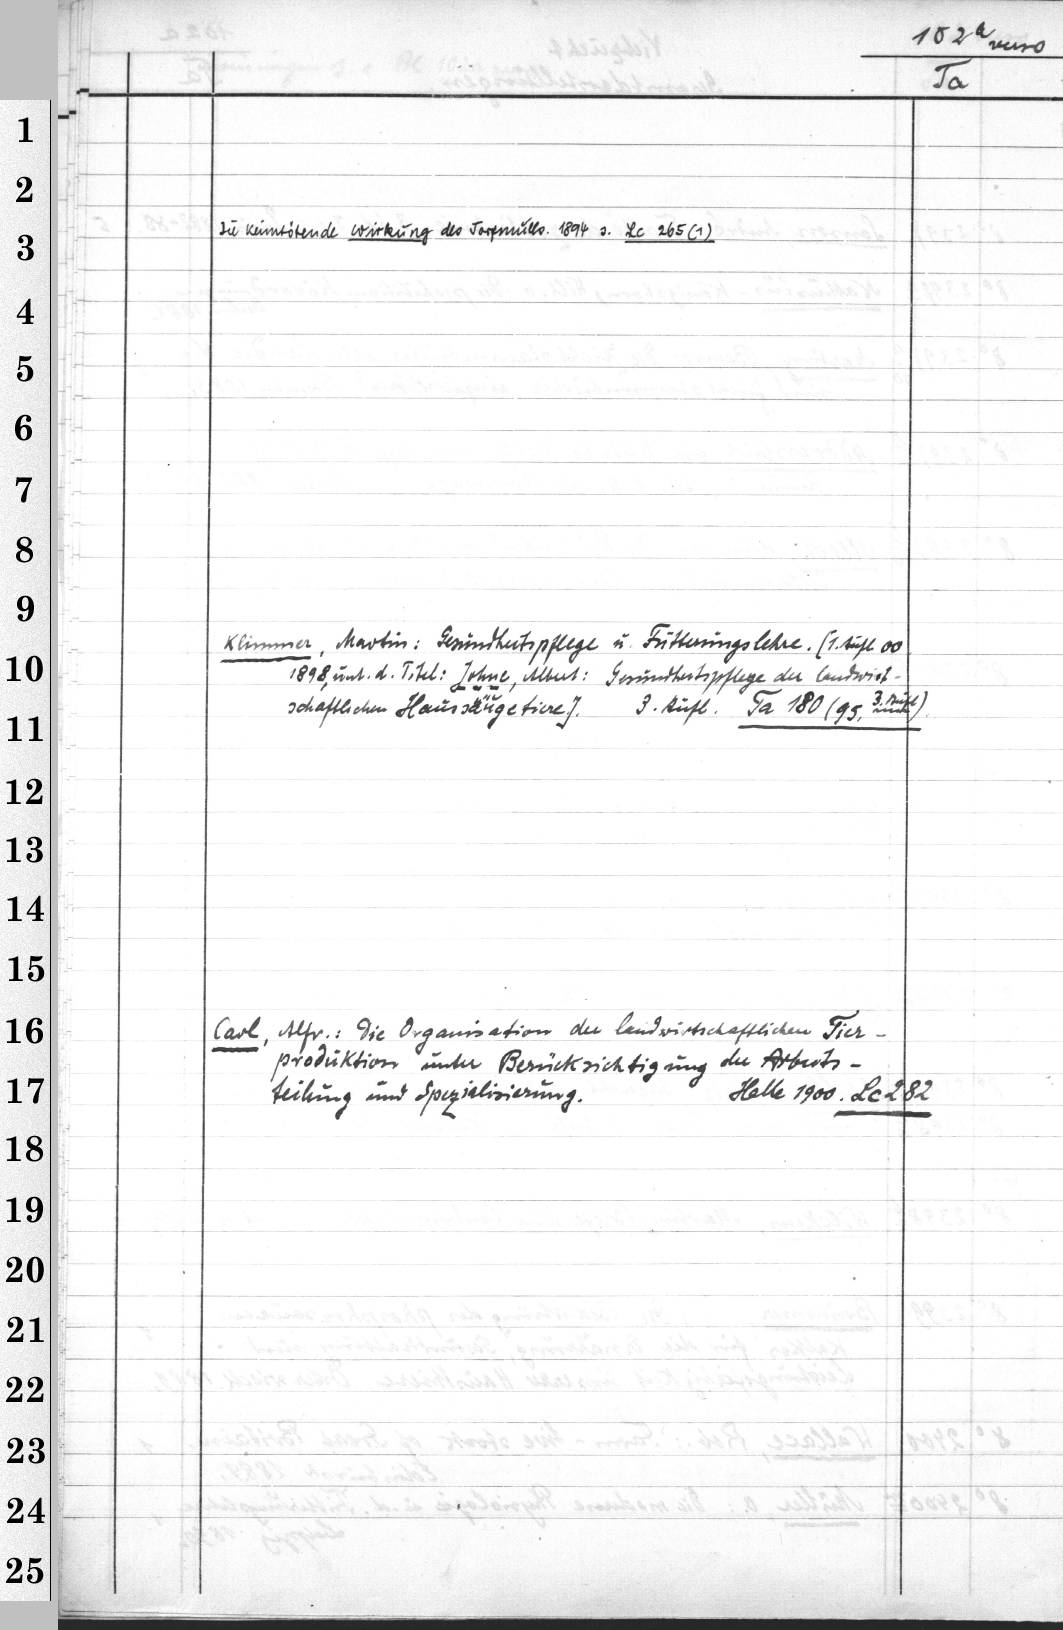 102a verso
Ta
1
2
Die keimtötende Wirkung des Torfmulls. 1894 s. Lc 265(1)
3
4
5
6
7
8
9
Klimmer, Martin: Gesundheitspflege u. Fütterungslehre. [1. Aufl.
10
1898, unt. d. Titel: Johne, Albert: Gesundheitspflege der landwirt-
schaftlichen Haussäugetiere]. 3. Aufl. Ta 180 (95, 3. Aufl)
11
12
13
14
15
16
Carl, Alfr.: Die Organisation der landwirtschaftlichen Tier-
produktion unter Berücksichtigung der Arbeits-
17
teilung und Spezialisierung. Halle 1900. Lc 282
18
19
20
21
22
23
24
25